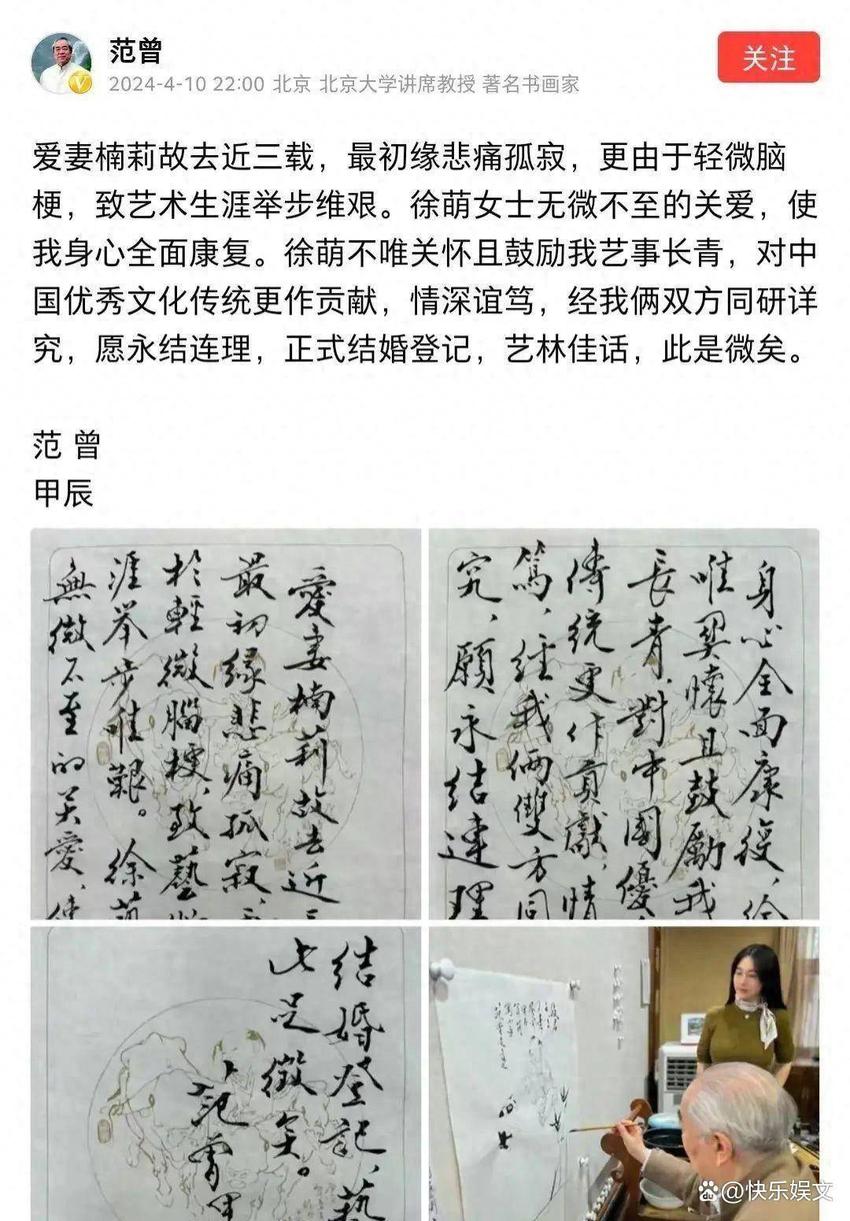 范曾
关注
2024-4-10 22:00 北京 北京大学讲席教授 著名书画家
爱妻楠莉故去近三载，最初缘悲痛孤寂，更由于轻微脑
梗，致艺术生涯举步维艰。徐萌女士无微不至的关爱，使
我身心全面康复。徐萌不唯关怀且鼓励我艺事长青，对中
国优秀文化传统更作贡献，情深谊笃，经我俩双方同研详
究，愿永结连理，正式结婚登记，艺林佳话，此是微矣。
范 曾
甲辰
愛妻楠莉故去近
最初缘悲痛孤寂，
於輕微腦梗，致藝
涯举步唯艱。徐
無微不至的关愛，使
身心全面康復，徐
唯関懷且鼓勵我
長青，對中國優
傳統更作貢獻，情
篤，经我俩雙方同
究，願永结連理
结婚登记，藝
此足微矣。
范曾
@快乐娱文